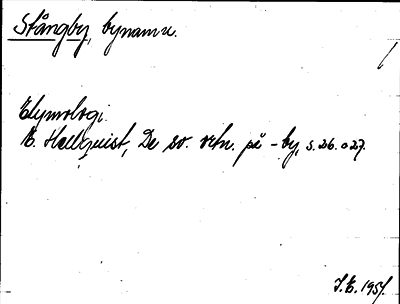 Stångby, bynamn.
Etymologi.
E. Hellquist, De sv. ortn. på -by, s. 26. o 27.
J. E. 1957.